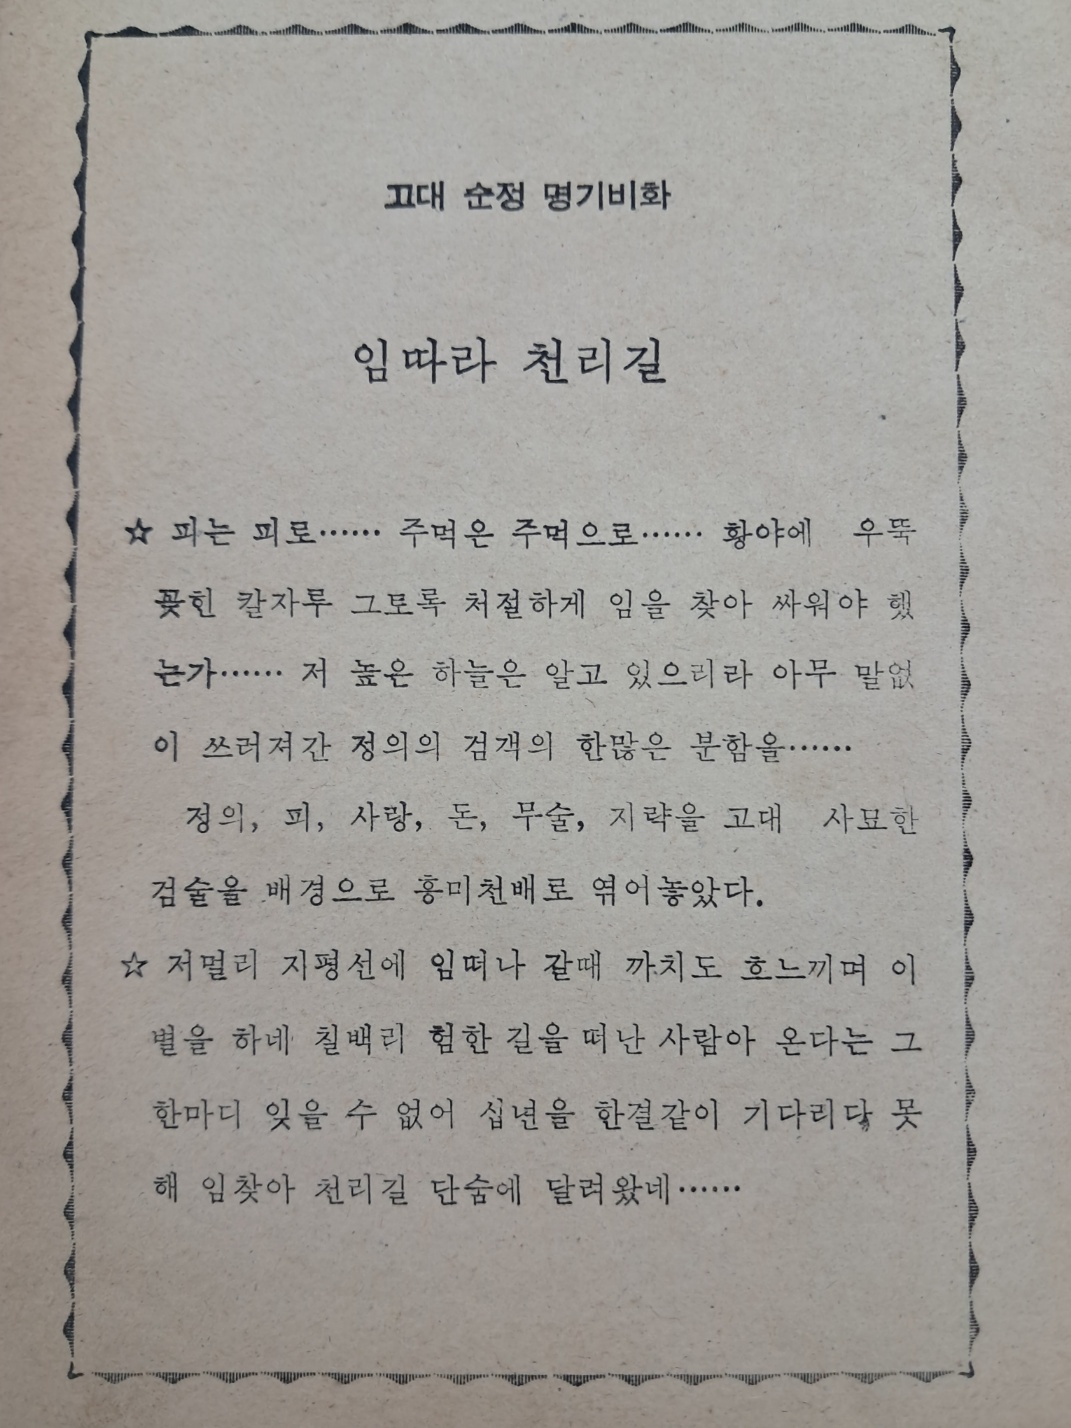 고대 순정 명기비화
임따라 천리길
☆ 피는 피로…… 주먹은 주먹으로…… 황야에 우뚝
꽂힌 칼자루 그토록 처절하게 임을 찾아 싸워야 했
는가…… 저 높은 하늘은 알고 있으리라 아무 말없
이 쓰러져간 정의의 검객의 한많은 분함을……
정의, 피, 사랑, 돈, 무술, 지략을 고대 사묘한
검술을 배경으로 흥미천배로 엮어놓았다.
☆ 저멀리 지평선에 임떠나 갈때 까치도 흐느끼며 이
별을 하네 칠백리 험한 길을 떠난 사람아 온다는 그
한마디 잊을 수 없어 십년을 한결같이 기다리다 못
해 임찾아 천리길 단숨에 달려왔네……